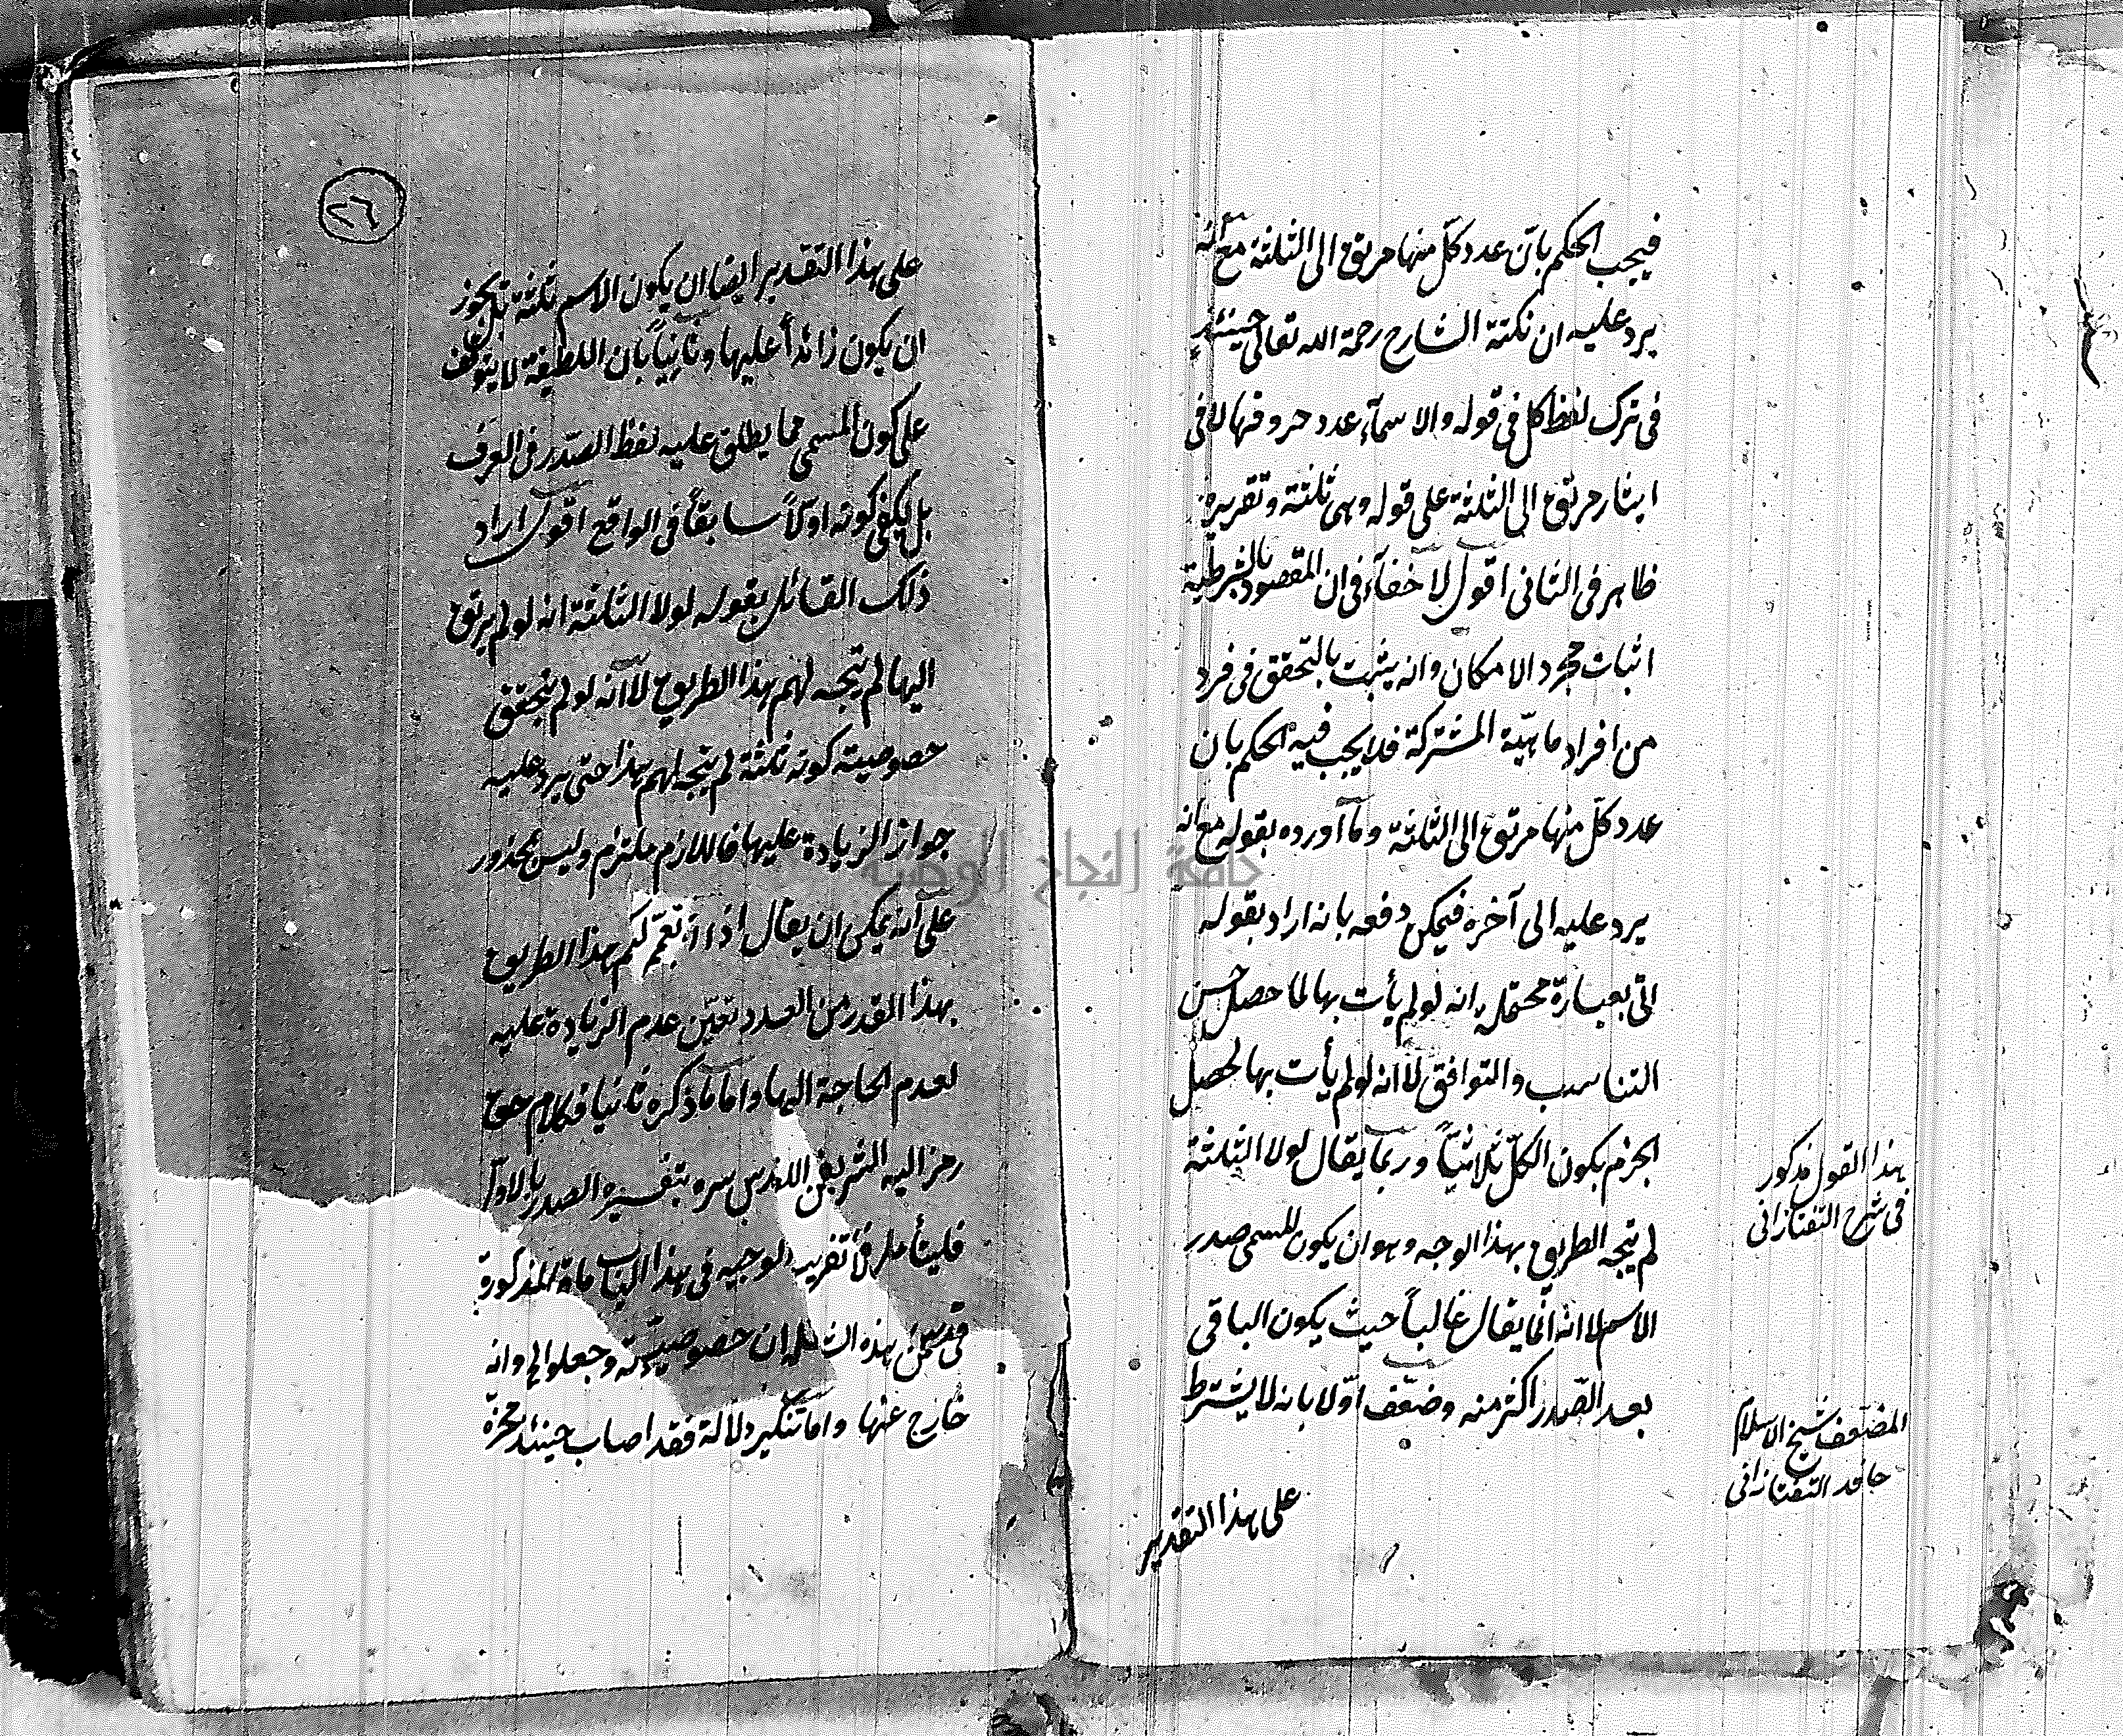 فيجب الحكم بان عدد كلّ منها مرتق الى الثلثة مع انه
يرد عليه ان نكتة الشارح رحمة الله تعالى حينئذ
فى ترك لفظ كل فى قوله والاسمآء عدد حروفها لا فى
ايثار مرتق الى الثلثة على قوله وهى ثلثة وتقريره
ظاهر فى الثانى اقول لا خفآء فى ان المقصود بالشرطية
اثبات مجرد الامكان وانه يثبت بالتحقق فى فرد
من افراد ماهيّة المشتركة فلا يجب فيه الحكم بان
عدد كلّ منها مرتق الى الثلثة وما آورده بقوله مع انه
يرد عليه الى آخره فيمكن دفعه بانه اراد بقوله
اتى بعبارة محتملة انه لو لم يأت بها لما حصل حسن
التناسب والتوافق لا انه لو لم يأت بها لحصل
الجزم بكون الكلّ ثلاثيّاً وربما يقال لولا الثلثة
لم يتجه الطريق بهذا الوجه وهو ان يكون للمسمى صدر
الاسم لا انه انّما يقال غالباً حيث يكون الباقى
بعد الصّدر اكثر منه وضعّف اوّلا بانه لا يشترط
على هذا التقدير
هذا القول مذكور
فى شرح التفتازانى
المضعف شيخ الاسلام
حافد التفتازانى
٢٦
على هذا التقدير ايضا ان يكون الاسم ثلثة بل يجوز
ان يكون زائداً عليها وثانياً بان اللطيفة لا يتوقف
على كون المسمى مما يطلق عليه لفظ الصّدر فى العرف
بل يكفى كونه اوّلاً سابقاً فى الواقع اقول اراد
ذلك القائل بقوله لولا الثلثة انه لو لم يرتق
اليها لم يتجه لهم هذا الطريق لا انه لو لم يتحقق
خصوصية كونه ثلثة لم يتجه لهم هذا حتى يرد عليه
جواز الزيادة عليها فاللازم ملتزم وليس بمحذور
على انه يمكن ان يقال اذا لهم هذا الطريق
بهذا القدر من العدد تعيّن عدم الزيادة عليه
لعدم الحاجة اليها واما ما ذكره ثانيا فكلام حق
رمز اليه الشريف قدس سره بتفسيره الصدر بالاول
فليتأمل فى تقريب الوجيه فى هذا الباب المذكورة
هذه ان خصوصية وجعلوا وانه
خارج عنها واما تنكير دلالة فقد اصاب حينئذ
جامعة النجاح الوطنية